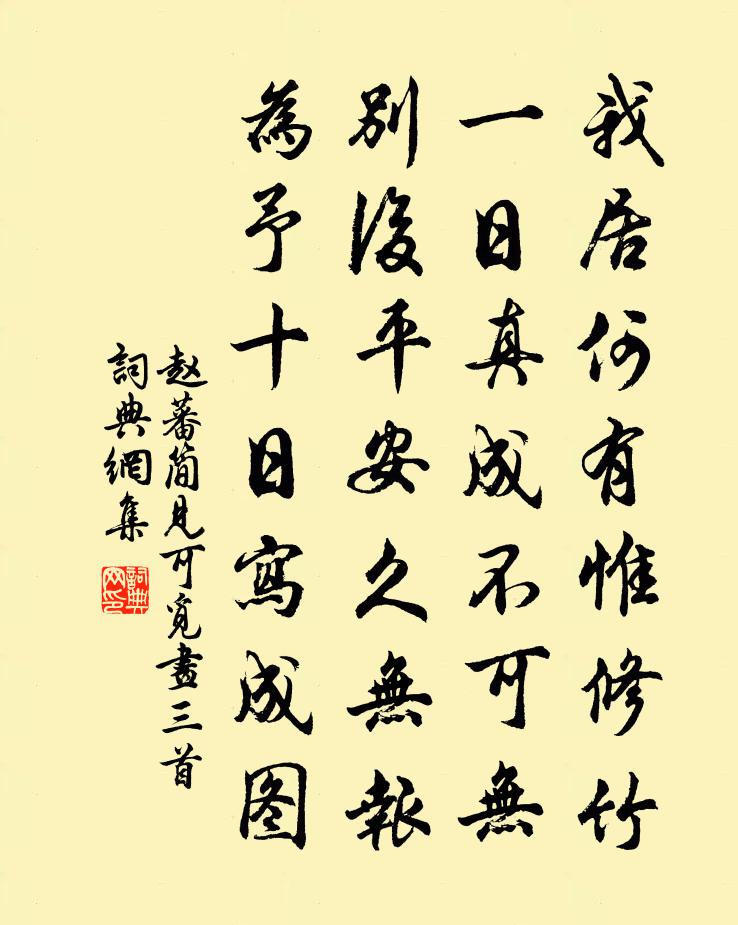 我居何有惟修竹
一日真成不可無
別後平安久無報
為予十日寫成图
赵蕃简見可覓畫三首
詞典網集
詞典網印